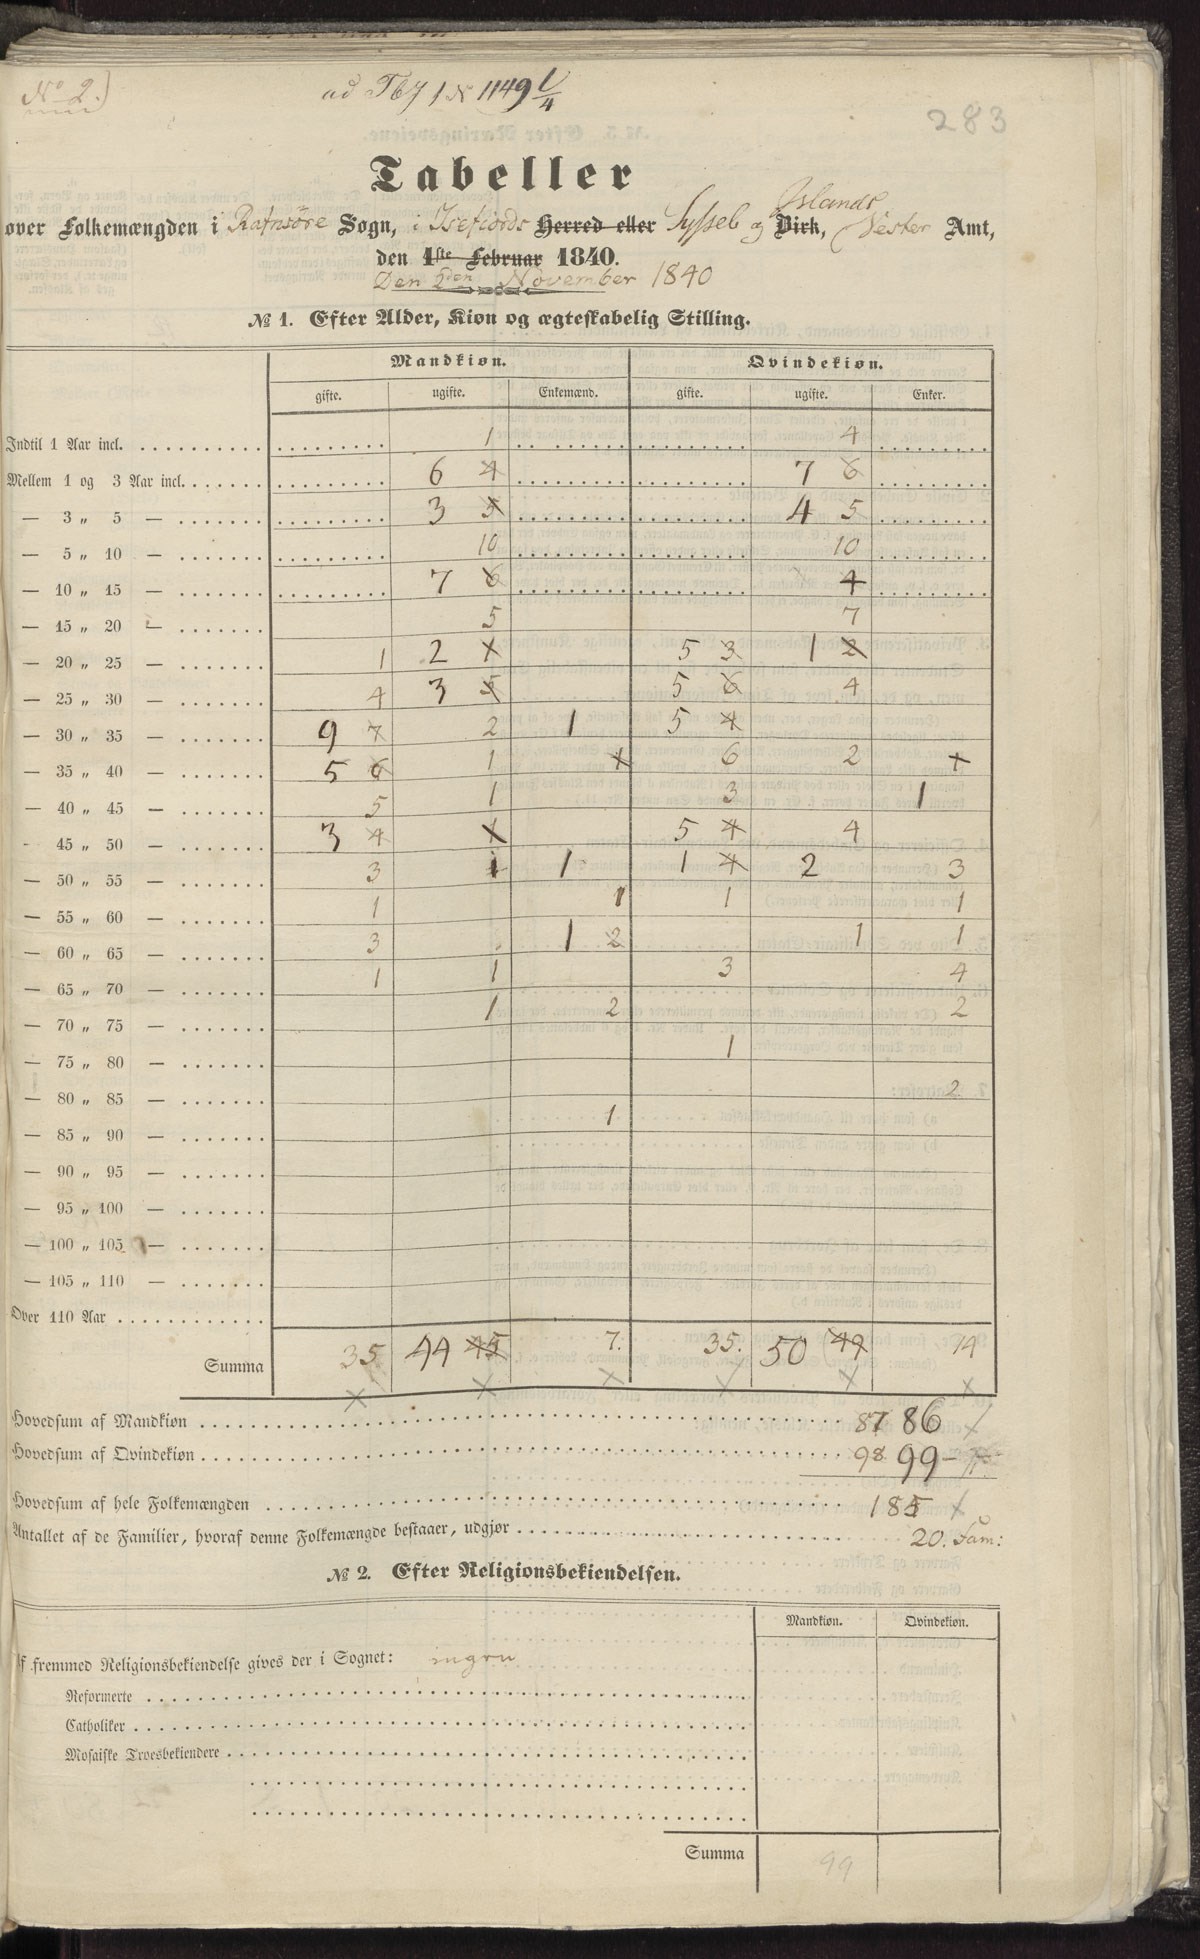 No 2.)
ad Tby 1 № 1149 1/4
283
Tabeller
over Folkemængden i Rafnsöre Sogn, i Isefiords Herred eller Syssel og Birk, Islands Vester Amt,
den 1ste Februar 1840.
Den 2den November 1840
№ 1. Efter Alder, Kiøn og ægteskabelig Stilling.
Mandkiøn. Qvindekiøn.
gifte. ugifte. Enkemænd. gifte. ugifte. Enker.
Indtil 1 Aar incl. 1 4
Mellem 1 og 3 Aar incl. 6 4 7 6
— 3 „ 5 — 3 5 4 5
— 5 „ 10 — 10 10
— 10 „ 15 — 7 6 4
— 15 „ 20 — 5 7
— 20 „ 25 — 1 2 1 5 3 1 2
— 25 „ 30 — 4 3 5 5 6 4
— 30 „ 35 — 9 7 2 1 5 4
— 35 „ 40 — 5 6 1 1 6 2 1
— 40 „ 45 — 5 1 3 1
45 „ 50 — 3 4 1 5 4 4
— 50 „ 55 — 3 1 1 1 4 2 3
— 55 „ 60 — 1 1 1 1
— 60 „ 65 — 3 1 2 1 1
— 65 „ 70 — 1 1 3 4
— 70 „ 75 — 1 2 2
— 75 „ 80 — 1
— 80 „ 85 — 2
— 85 „ 90 — 1
— 90 „ 95 —
— 95 „ 100 —
— 100 „ 105 —
— 105 „ 110 —
Over 110 Aar
Summa 35 44 45 7. 35. 50 49 14
Hovedsum af Mandkiøn 87 86
Hovedsum af Qvindekiøn 98 99
Hovedsum af hele Folkemængden 185
Antallet af de Familier, hvoraf denne Folkemængde bestaaer, udgjør 20. Fam:
№ 2. Efter Religionsbekiendelsen.
Mandkiøn. Qvindekiøn.
Af fremmed Religionsbekiendelse gives der i Sognet: ingen
Reformerte
Catholiker
Mosaiske Troesbekiendere
Summa
99